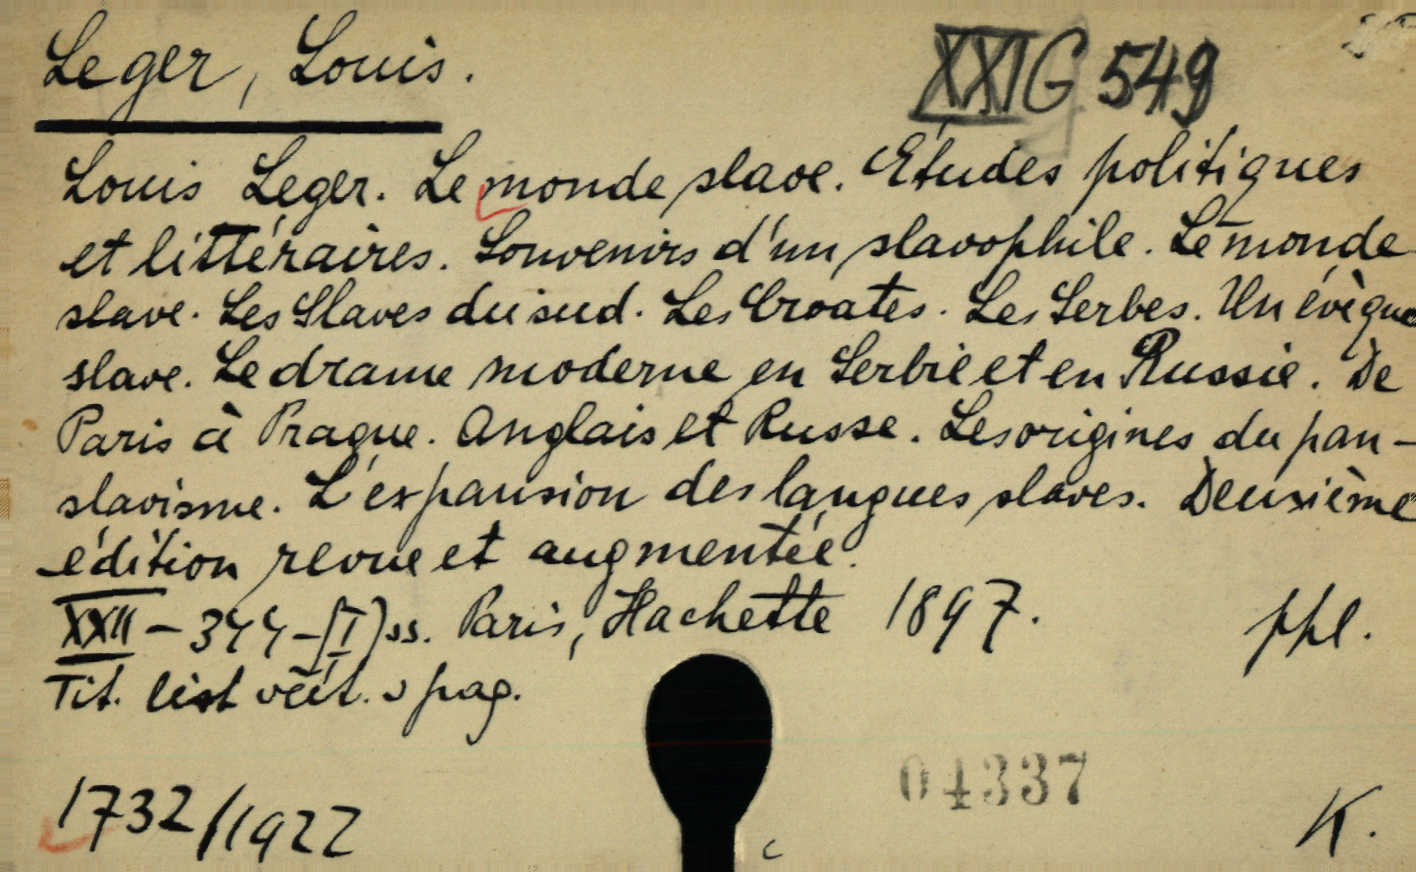 Leger, Louis.
XXI G 549
Louis Leger. Le monde slave. Études politiques
et littéraires. Souvenirs d'un slavophile. Le monde
slave. Les Slaves du sud. Les Croates. Les Serbes. Un évèque
slave. Le drame moderne en Serbie et en Russie. De
Paris à Prague. Anglais et Russe. Les origines du pan-
slavisme. L'expansion des langues slaves. Deuxième
édition revue et augmentée.
XXII-344-[I] ss. Paris, Hachette 1897. ppl.
Tit. list včít. v pag.
04337
1732/1922
K.